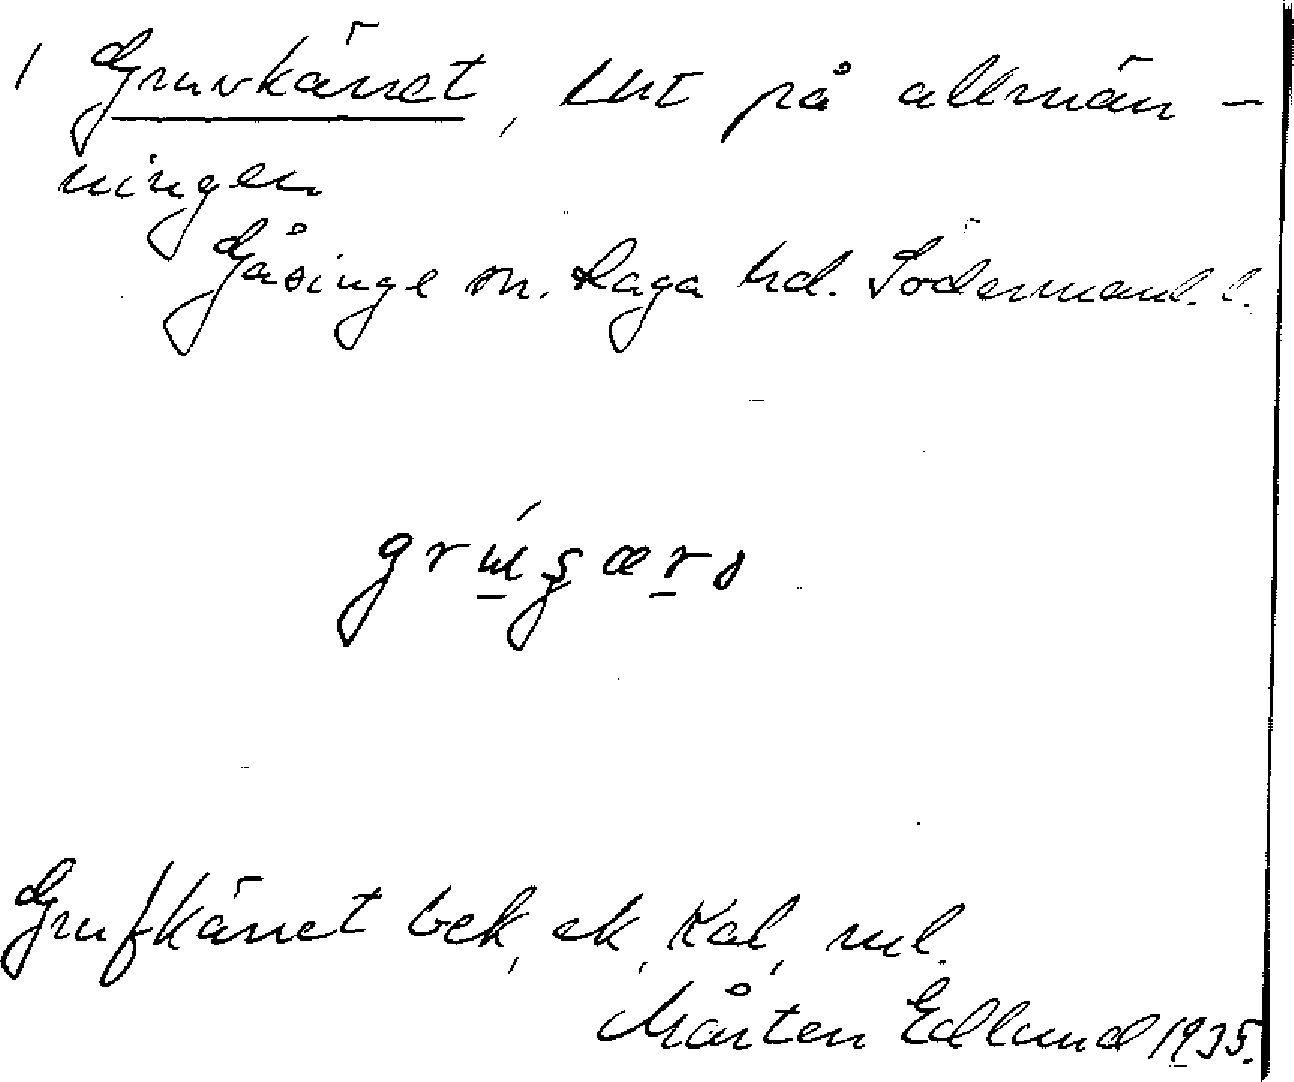 1 Gruvkärret, lht på allmän-
ningen
Gåsinge sn. Daga hd. Södermanl. l.
Grufkärret bek, ek, Kal, rul.
Mårten Edlund 1935.